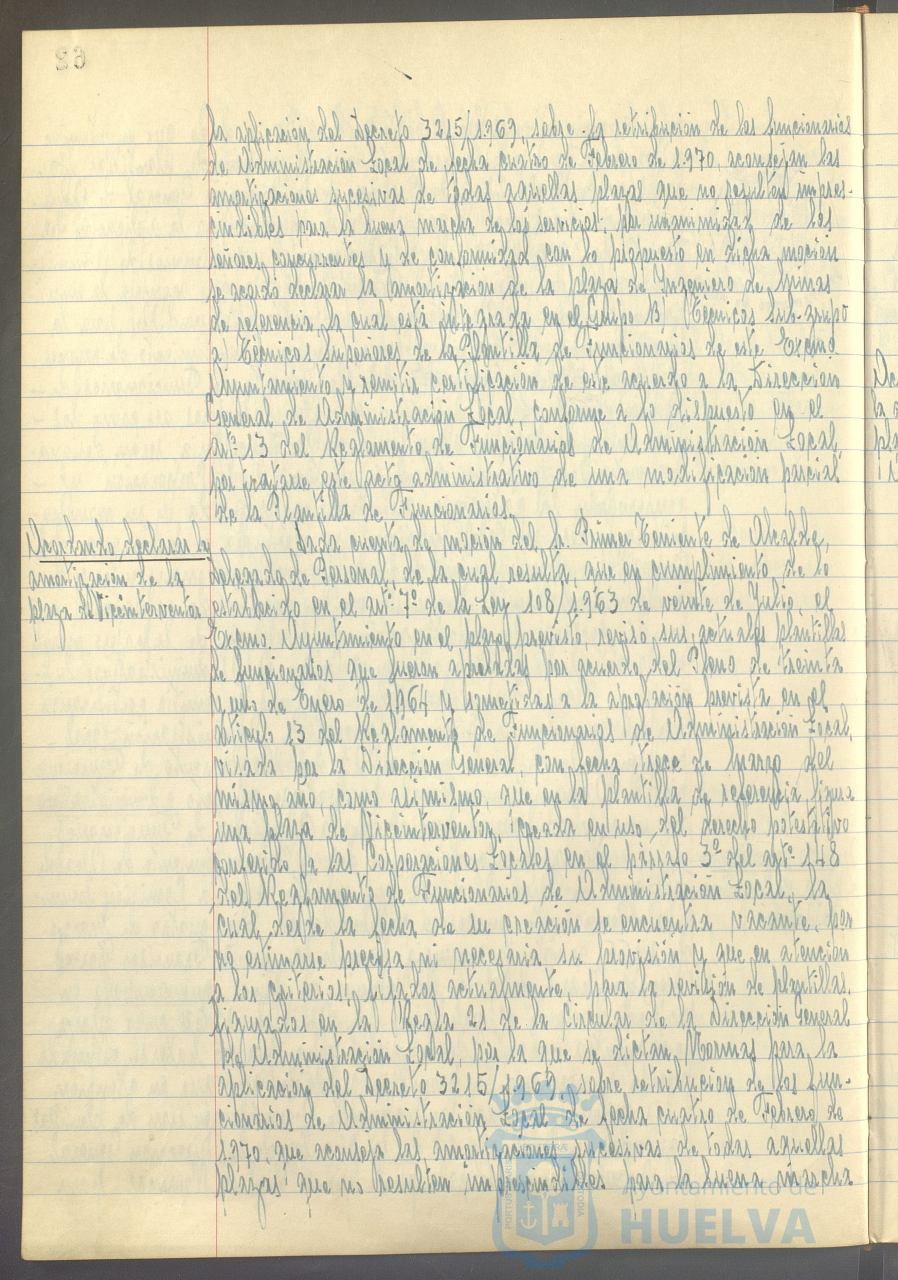 62
la aplicación del Decreto 3215/1.969, sobre la retribución de los funcionarios
de Administración Local de fecha cuatro de Febrero de 1.970, aconsejan las
amortizaciones sucesivas de todas aquellas plazas que no resulten impres-
cindibles para la buena marcha de los servicios; por unanimidad de los
señores concurrentes y de conformidad con lo propuesto en dicha moción
se acordó declarar la amortización de la plaza de Ingeniero de Minas
de referencia, la cual está integrada en el Grupo B) Técnicos Sub-grupo
a) Técnicos Superiores de la Plantilla de Funcionarios de este Excmo.
Ayuntamiento y remitir certificación de este acuerdo a la Dirección
General de Administración Local, conforme a lo dispuesto en el
artº 13 del Reglamento de Funcionarios de Administración Local
por tratarse este acto administrativo de una modificación parcial
de la Plantilla de Funcionarios.
Acordando declarar la
amortización de la
plaza de Viceinterventor
Dada cuenta de moción del Sr. Primer Teniente de Alcalde,
Delegado de Personal, de la cual resulta, que en cumplimiento de lo
establecido en el artº 7º de la Ley 108/1.963 de veinte de Julio, el
Excmo. Ayuntamiento en el plazo previsto, revisó sus actuales plantillas
de funcionarios que fueron aprobadas por acuerdo del Pleno de treinta
y uno de Enero de 1.964 y sometidas a la aprobación prevista en el
artículo 13 del Reglamento de Funcionarios de Administración Local,
visada por la Dirección General, con fecha trece de marzo del
mismo año, como asimismo, que en la plantilla de referencia figura
una plaza de Viceinterventor, creada en uso del derecho potestativo
conferido a las Corporaciones Locales en el párrafo 3º del artº 148
del Reglamento de Funcionarios de Administración Local, la
cual desde la fecha de su creación se encuentra vacante, por
no estimarse precisa ni necesaria su provisión y que en atención
a los criterios fijados actualmente para la revisión de plantillas,
figurados en la Regla 21 de la Circular de la Dirección General
de Administración Local, por la que se dictan Normas para la
aplicación del Decreto 3215/1.969, sobre retribución de los fun-
cionarios de Administración Local de fecha cuatro de Febrero de
1.970, que aconseja las amortizaciones sucesivas de todas aquellas
plazas que no resulten imprescindibles para la buena marcha
Ayuntamiento de
HUELVA